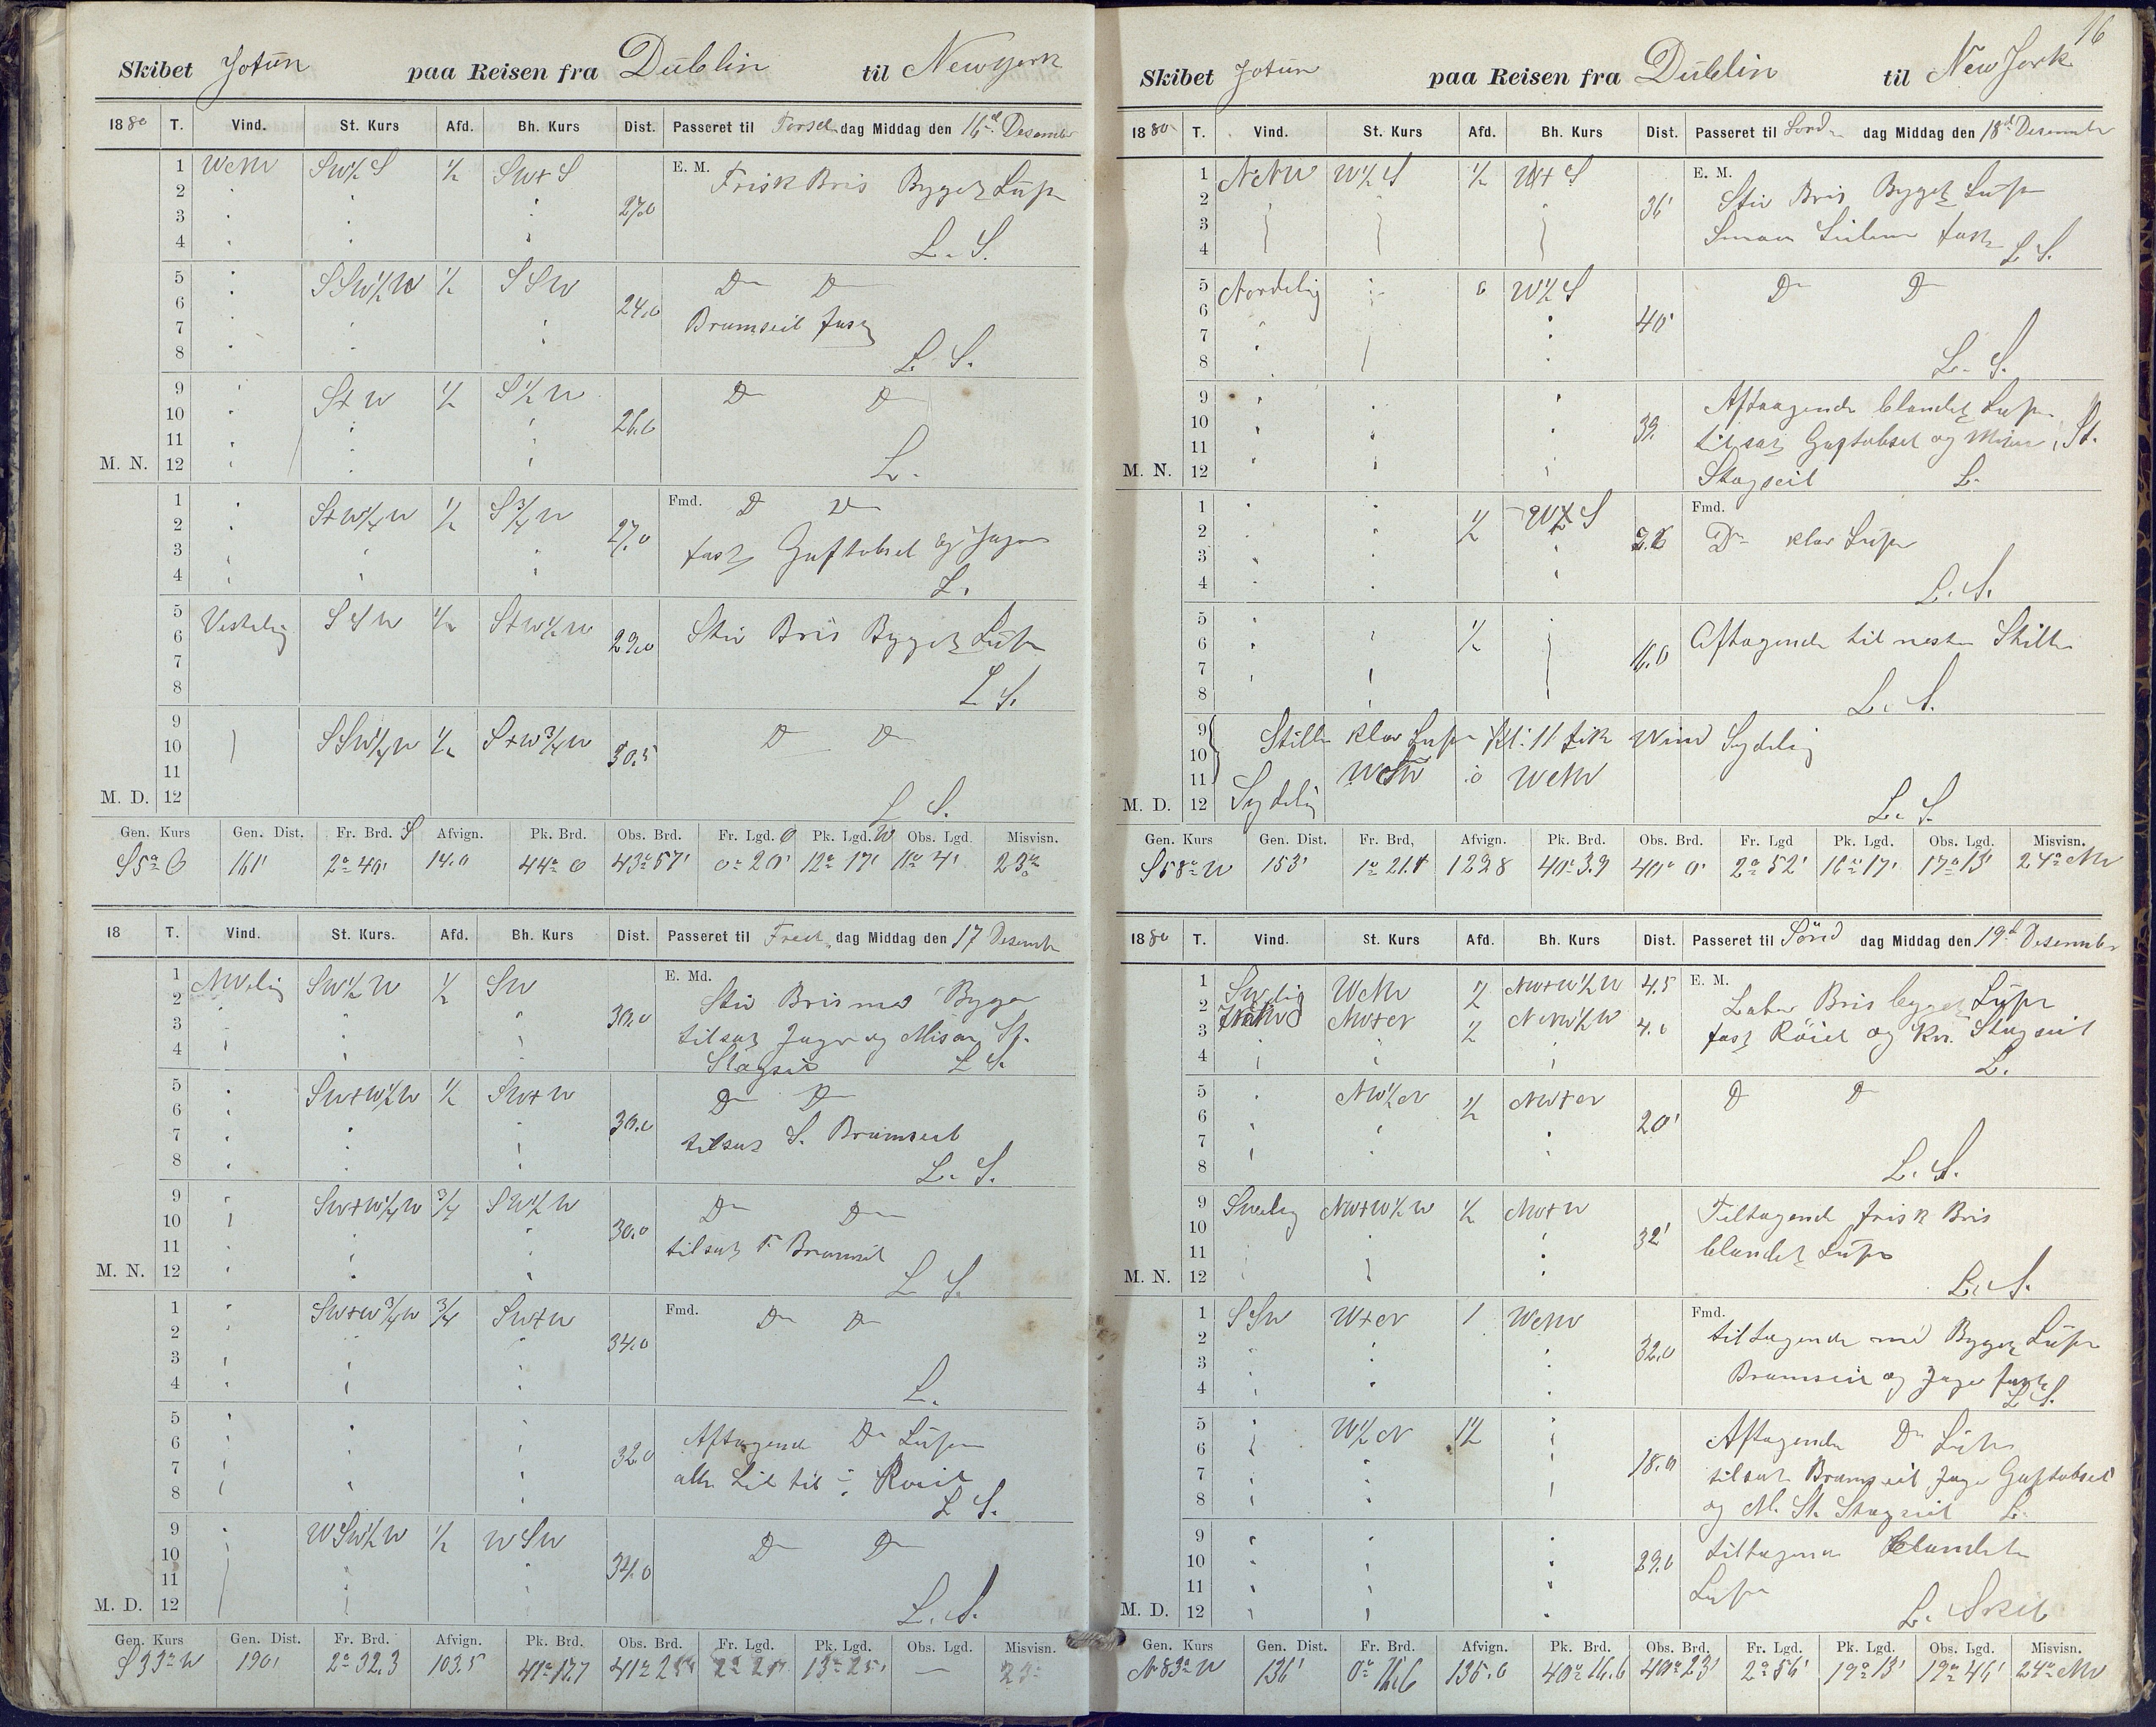 Skibet Jotun paa Reisen fra Dublin til Newyork
1880 T. Vind. St. Kurs Afd. Bh. Kurs Dist. Passeret til Torsdag Middag den 16d Desember
1 WNW SW½S ½ SWtS E. M. Frisk Bris Byget Luft
2
3 27.0
4 L. S.
5 SSW½W ½ SSW Do Do
6 24.0
7 Bramseil fast
8 L. S.
9 StW ½ S½W Do Do
10 26.0
11
M. N. 12 L.
1 StW¼W ½ S¾W Fmd. Do Do
2 27.0
3 fast Gaftobseil og Jager
4 L.
5 Vestelig SSW ½ StW½W
6 29.0 Stiv Bris Byget Luft
7
8 L S.
9 SSW¼W ½ StW¾W Do Do
10 30.5
11
M. D. 12 L S.
Gen. Kurs Gen. Dist. Fr. Brd. S Afvign. Pk. Brd. Obs. Brd. Fr. Lgd. O Pk. Lgd. W Obs. Lgd. Misvisn.
S5°O 161' 2° 40' 14.0 44° 0 43° 57' 0° 20' 12° 17' 11° 41' 23°
18 T. Vind. St. Kurs. Afd. Bh. Kurs Dist. Passeret til Fredag Middag den 17 Desember
1 NWelig SW½W ½ SW E. Md.
2 30.0 Stiv Bris med Byger
3 tilsat Jager og Misan St.
4 Stagseil L S.
5 SWtW½W ½ SWtW Do Do
6 30.0
7 tilsat S. Bramseil
8 L. S.
9 SWtW¼W ¾ SW½W Do Do
10 30.0
11 tilsat F. Bramseil
M. N. 12 L S.
1 SWtW¾W ¾ SWtW Fmd. Do Do
2 34.0
3
4 L.
5
6 32.0 Aftagende Do Luft
7 alle Seil til Roeil
8 L S.
9 WSW½W ½ WSW Do Do
10 34.0
11
M. D. 12 L. S.
Gen. Kurs Gen. Dist. Fr. Brd. Afvign. Pk. Brd. Obs. Brd. Fr. Lgd. Pk. Lgd. Obs. Lgd. Misvisn.
S 33° W 190' 2° 32.3 103.5 41° 12.7 13° 25' — 23°
16
Skibet Jotun paa Reisen fra Dublin til New York
1880 T. Vind. St. Kurs Afd. Bh. Kurs Dist. Passeret til Lørdag Middag den 18d Desember
1 NNW W½S ½ WtS E. M.
2 36' Stiv Bris Byget Luft
3 Smaa Seilene fast
4 L S.
5 Nordelig 0 W½S Do Do
6 40'
7
8 L. S.
9 Aftagende blandet Luft
10 39. tilsat Gaftobseil og Misan St.
11
M. N. 12 Stagseil L.
1 Fmd.
2 ½ Do klar Luft
3
4 L. S.
5
6 ½ Aftagende til nesten Stille
7
8 L. S.
9 Stille klar Luft Kl: 11 fik Wind Sydelig
10
11 WNW 0 WNW
M. D. 12 Sydelig L. S.
Gen. Kurs Gen. Dist. Fr. Brd, Afvign. Pk. Brd. Obs. Brd. Fr. Lgd Pk. Lgd. Obs. Lgd. Misvisn.
S58°W 153' 1° 21.1 129.8 40° 3.9 40° 0' 2° 52' 16° 17' 17° 13' 24° NW
1880 T. Vind. St. Kurs Afd. Bh. Kurs Dist. Passeret til Sønddag Middag den 19d Desember
1 SWelig WNW ½ NWtW½W 4.5 E. M.
2 Laber Bris byget Luft
3 NWtN ½ NNW½W 4.0 fast Röiel og Kn. Stagseil
4 L.
5 NW½N ½ NWtN Do Do
6 20'
7
8 L. S.
9 SWelig NWtW½W ½ NWtW Tiltagende frisk Bris
10 32'
11 blandet Luft
M. N. 12 L. S.
1 SSW WtN 1 WNW Fmd.
2 32.0 tiltagende med Byget Luft
3
4 Bramseil og Jager fast L S.
5 W½N 1½
6 18.0 Aftagende Do Luft
7 tilsat Bramseil Jager Gaftobseil
8 og M. St. Stagseil L.
9 tiltagende blandet
10 29.0
11 Luft
M. D. 12 L. Skeb
Gen. Kurs Gen. Dist. Fr. Brd. Afvign. Pk. Brd. Obs. Brd. Fr. Lgd. Pk. Lgd. Obs. Lgd. Misvisn.
N 83° W 136' 0° 16.6 135.0 40° 16.6 40° 23' 2° 56' 19° 13' 19° 46' 24° NW